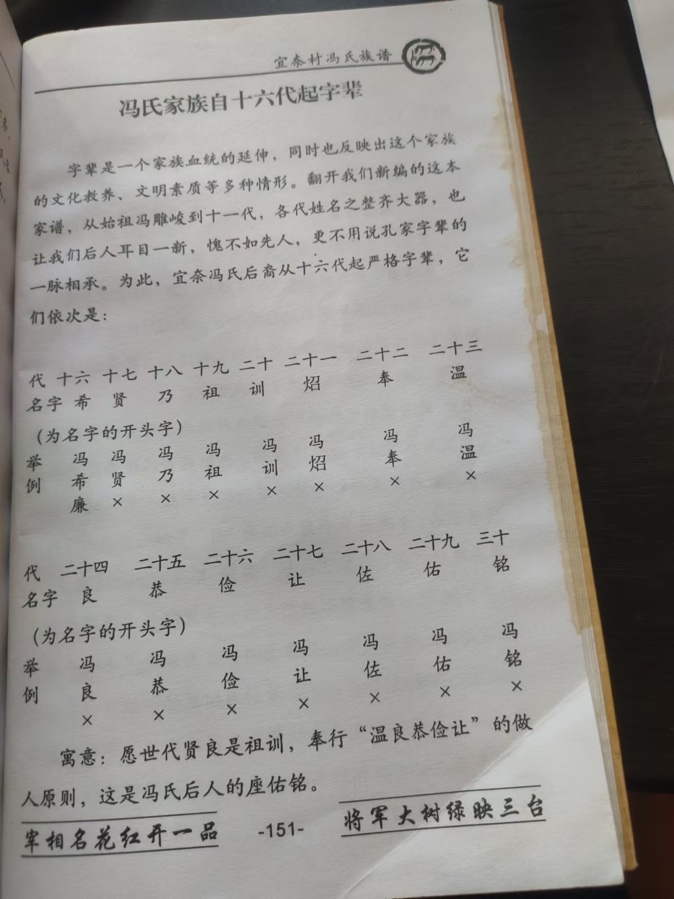 宜奈村冯氏族谱
冯氏家族自十六代起字辈
字辈是一个家族血统的延伸，同时也反映出这个家族
的文化教养、文明素质等多种情形。翻开我们新编的这本
家谱，从始祖冯雕峻到十一代，各代姓名之整齐大器，也
让我们后人耳目一新，愧不如先人，更不用说孔家字辈的
一脉相承。为此，宜奈冯氏后裔从十六代起严格字辈，它
们依次是：
代 十六 十七 十八 十九 二十 二十一 二十二 二十三
名字 希 贤 乃 祖 训 炤 奉 温
（为名字的开头字）
举 冯 冯 冯 冯 冯 冯 冯 冯
例 希 贤 乃 祖 训 炤 奉 温
廉 × × × × × × ×
代 二十四 二十五 二十六 二十七 二十八 二十九 三十
名字 良 恭 俭 让 佐 佑 铭
（为名字的开头字）
举 冯 冯 冯 冯 冯 冯 冯
例 良 恭 俭 让 佐 佑 铭
× × × × × × ×
寓意：愿世代贤良是祖训，奉行“温良恭俭让”的做
人原则，这是冯氏后人的座佑铭。
宰相名花红开一品 -151- 将军大树绿映三台